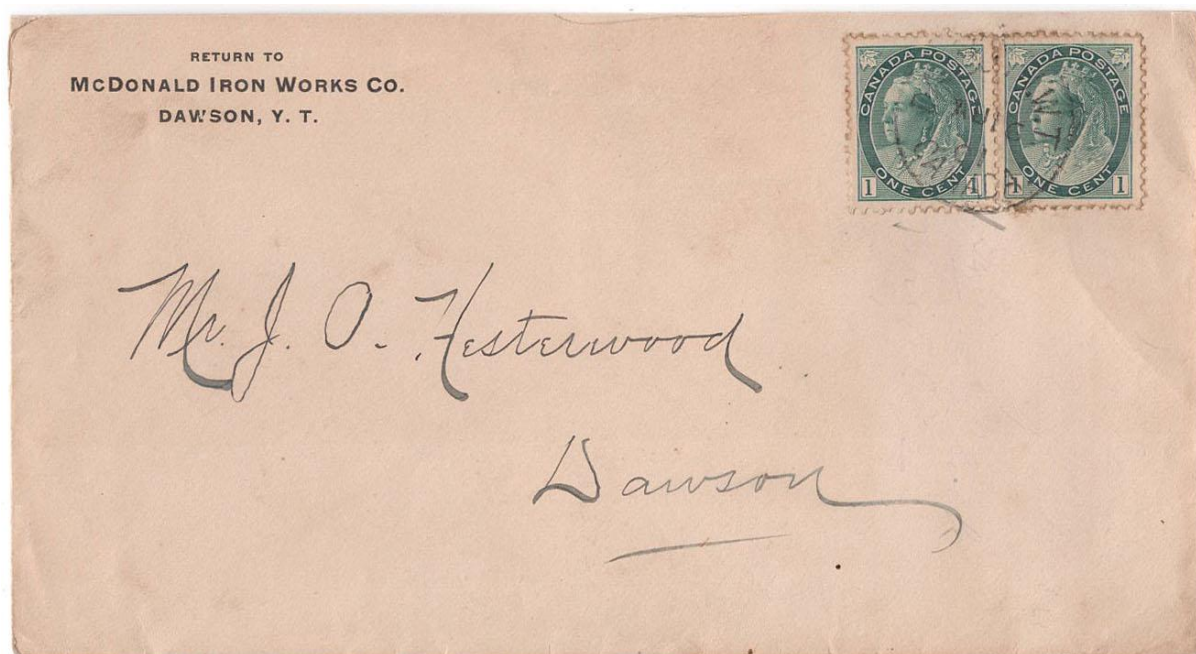 RETURN TO
McDONALD IRON WORKS CO.
DAWSON, Y. T.
CANADA POSTAGE
1 ONE CENT 1
CANADA POSTAGE
1 ONE CENT 1
W.T.
CANADA
Mr. J. O. Hesterwood
Dawson